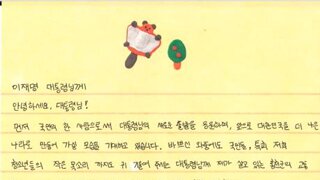 이재명 대통령님께
안녕하세요, 대통령님!
먼저 국민의 한 사람으로써 대통령님의 새로운 출발을 응원하며, 앞으로 대한민국을 더 나은
나라로 만들어 가실 모습을 기대하고 있습니다. 바쁘신 와중에도 국민들, 특히 저희
청소년들의 작은 목소리 까지도 귀 기울여 주시는 대통령님께 제가 살고 있는 의 교통